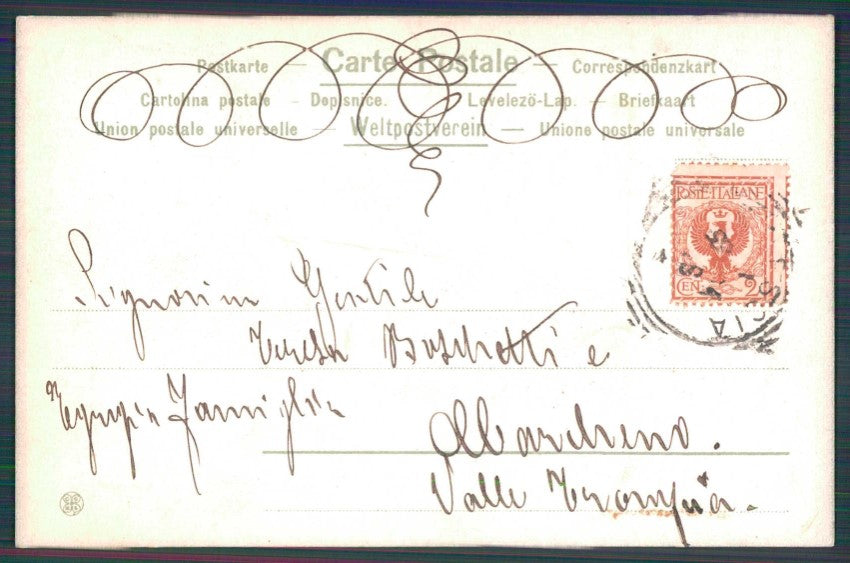 Postkarte — Carte Postale — Correspondenzkart
Cartolina postale – Dopisnice. – Levelező-Lap. – Briefkaart
Union postale universelle — Weltpostverein — Unione postale universale
POSTE ITALIANE
CEN. 2
Signorina Gentile
Teresa Boschetti e
Famiglia
Marcheno.
Valle Trompia.